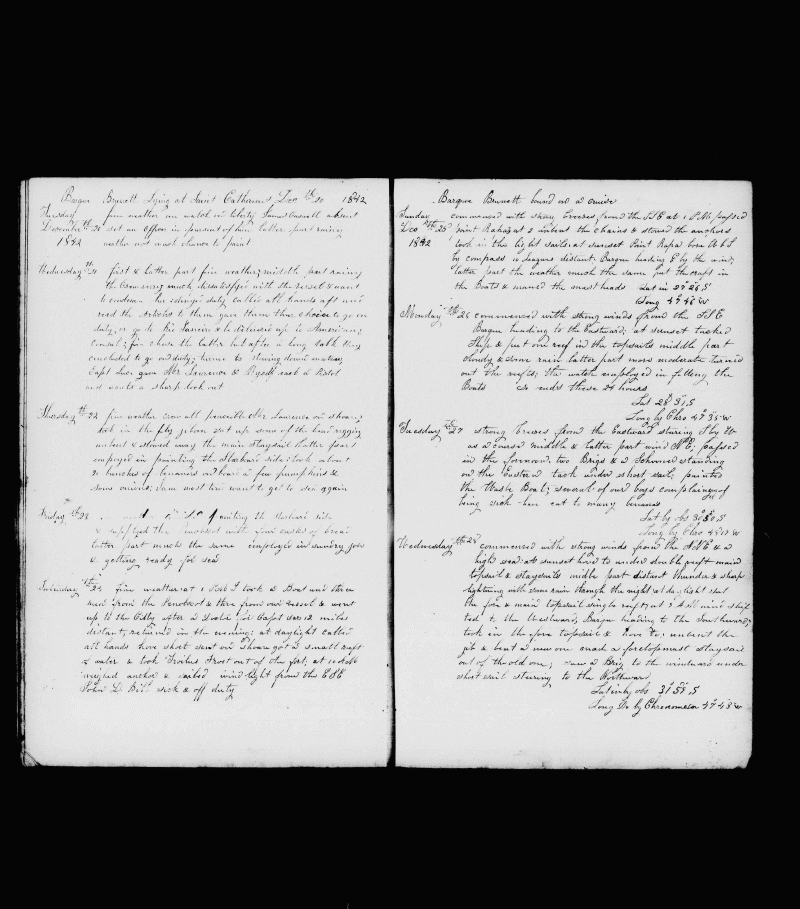 Barque Bruntt Lying at Saint Catharines Dec th 20 1842
Tuesday fine weather one watch on liberty James absent
December th 20 set an Officer in pursuit of him latter part rainy
1842 weather not much chance to paint
Wednesday th 21 first & latter part fine weather; middle part rainy
the Company much dissatisfied with the vessel & want
to condemn her doing duty called all hands aft and
read the Articles to them gave them their choice to go on
duty, or go to Rio Janeiro & be delivered up to American
Consul; four chose the latter but after a long talk they
concluded to go on duty; turned to
Capt Luce gave Mr Lawrence & Myself each a Pistol
and wants a sharp look out
Thursday th 22 fine weather crew all peaceable Mr Lawrence on shore;
took in the fly jib boom set up some of the head rigging
unbent & stowed away the main staysail latter part
employed in painting the Starboard side: took about
bunches of bananas on board a few pumpkins &
some onions; am most tired want to get to sea again
Friday th 23 painting the starboard side
& supplyed the Penobscot with four casks of bread
latter part much the same employed in sundry jobs
& getting ready for sea
Saturday th 24 fine weather at 1 P.M. I took a Boat and three
men from the Penobscot & three from our vessel & went
up to the City after a Load for Capt 12 miles
distant, returned in the evening; at daylight called
all hands hove short sent on shore got a small raft
of water & took Troilus Frost out of the fort; at 10 AM
weighed anchor & sailed wind light from the ESE
John L. Bill sick & off duty
Barque Bruntt bound on a cruise
Sunday commenced with sharp breezes from the SSE at 1 P.M. passed
Dec th 25 point Rapa; at 2 unbent the chains & stowed the anchors
1842 took in the light sails at sunset Point Rapa bore
by compass leagues distant. Barque heading E by the wind;
latter part the weather much the same put the craft in
the Boats & manned the mast heads Lat in 27° 26' S
Long 47° 48' W
Monday th 26 commenced with strong winds from the SSE
Barque heading to the Eastward; at sunset tacked
Ship & put one reef in the topsails middle part
cloudy & some rain latter part more moderate turned
out the reefs; the watch employed in fitting the
Boats So ends these 24 hours
Lat 28° 31' S
Long by Chro 47° 35' W
Tuesday th 27 strong breezes from the Eastward steering S by W
as a course middle & latter part wind NE; passed
in the forenoon two Brigs & a Schooner standing
on the Eastern tack under short sail; painted
the Waste Boat; several of our boys complaining of
being sick have eat to many bananas
Lat by obs 30° 50' S
Long by Chro 48° 17' W
Wednesday th 28 commenced with strong winds from the NNE & a
high sea: at sunset hove to under double reeft main
topsail & staysails midle part distant thunder & sharp
lightning with some rain through the night at daylight set
the fore & main topsail single reeft; at 8 A.M. wind shif
ted to the Westward, Barque heading to the Southward;
took in the fore topsail & hove to; unbent the
jib & bent a new one made a foretopmast staysail
out of the old one; saw a Brig to the windward under
short sail steering to the Northward,
Lat in by obs 31° 58' S
Long Do by Chronometer 47° 48' W